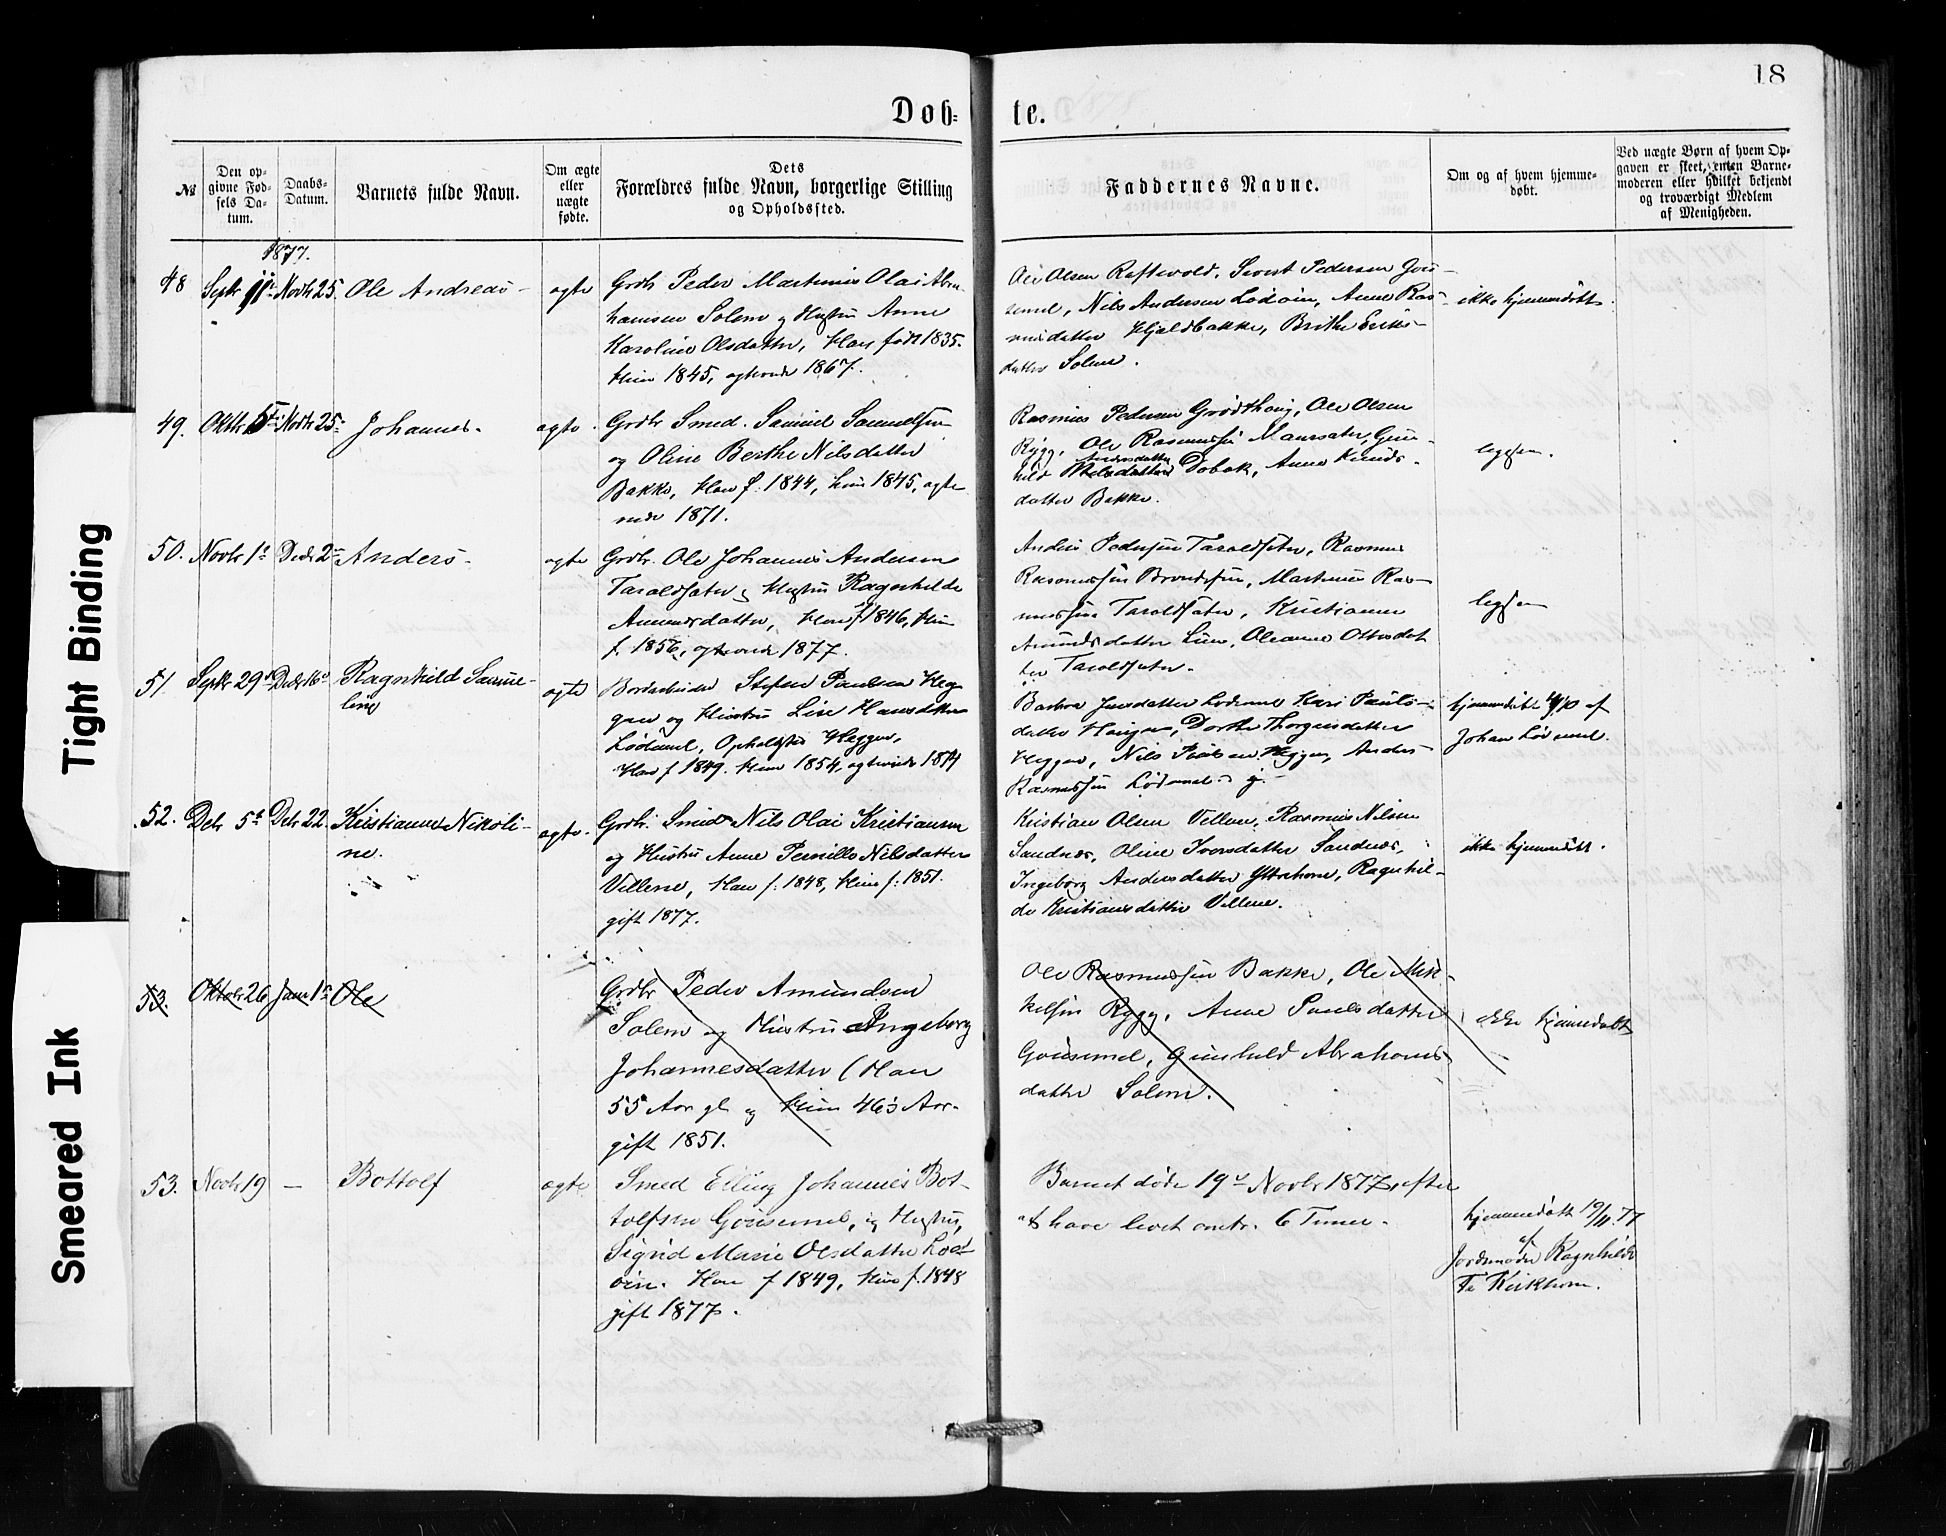 18
Døb-
te.
№
Den opgivne Fødsels Datum.
Daabs-Datum.
Barnets fulde Navn.
Om ægte eller uægte fødte.
Dets Forældres fulde Navn, borgerlige Stilling og Opholdssted.
Faddernes Navne.
Om og af hvem hjemmedøbt.
Ved uægte Børn af hvem Opgaven er skeet, enten Barnemoderen eller hvilket bekjendt og troværdigt Medlem af Menigheden.
1877.
48 Septr 11 Novbr 25. Ole Andreas - ægte
Grdbr Peder Martinus Olai Abra-
hamsen Solem og Hustru Anne
Karoline Olsdatter, Han født 1835.
Hun 1845, ægtevede 1867.
Ole Olsen Raftevold, Sivert Pedersen
Nils Andersen Lodøin, Anne Ras-
musdatter Hjeldbakke, Brithe Eriks-
datter Solem.
ikke hjemmedøbt.
49. Oktbr 5te Novbr 25. Johannes. ægte.
Grdbr Smed. Samuel Samuelsen
og Oline Berthe Nilsdatter
Bakke, Han f. 1844, hun 1845, ægte
vede 1871.
Rasmus Pedersen Grødthaug, Ole Olsen
Rygg, Ole Rasmussen Maursæter, Gun-
Andersdatter
hild Nilsdatter Dobak, Anne Knuds-
datter Bakke.
50. Novbr 1 Decbr 2 Anders. ægte
Grdbr. Ole Johannes Andersen
Taraldsæter og Hustru Ragnhilde
Amundsdatter, Han f 1846, Hun
f. 1856, ægtevede 1877.
Anders Pedersen Taraldsæter, Rasmus
Rasmussen Martinus Ras-
mussen Taraldsæter, Kristianne
Amundsdatter Lien, Oleanne Ottesdat
ter Taraldsæter.
51 Septr 29 Decbr 16 Ragnhild Samue-
line ægte
Bordarbeider Stefen Paulsen Heg
gen og Hustru Lise Hansdatter
Lødemel, Opholdssted Heggen,
Han f 1849. Hun 1854, ægtevede 1874
Barbra Jensdatter Lødemel Kari Pauls-
datter Haugen, Dorthe Thorgersdatter
Heggen, Nils Paulsen Heggen, Anders
Rasmussen Lødemel.
hjemmedøbt 14/10 af
Johan Lødemel.
52. Debr 5te Debr 22. Kristianne Nikoli-
ne. ægte.
Grdbr. Smed Nils Olai Kristiansen
og Hustru Anne Pernille Nilsdatter
Vellene, Han f. 1848, Hun f. 1851.
gift 1877.
Kristian Olsen Vellene, Rasmus Nilsen
Sandnæs, Oline Iversdatter Sandnæs,
Ingeborg Andersdatter Yttrehorn, Ragnhil-
de Kristiansdatter Vellene.
ikke hjemmedøbt.
53. Oktobr 26 Janr 1ste Ole
Grdbr Peder Amundsen
Solem og Hustru Ingeborg
Johannesdatter (Han
55 Aar gl og Hun 46½ Aar.
gift 1851.
Ole Rasmussen Bakke, Ole Mik
kelsen Rygg, Anne Paulsdatter
Gousemel, Gunhild Abrahams
datter Solem.
ikke hjemmedøbt
53. Novbr 19 — Bottolf ægte
Smed Elling Johannes Bot-
tolfsen Gousemel, og Hustru,
Sigrid Marie Olsdatter Lod-
øin. Han f 1849, Hun f. 1848
gift 1877.
Barnet døde 19de Novbr 1877, efter
at have levet omtr. 6 Timer.
hjemmedøbt 19/11. 77
af
Jordmoder Ragnhilde
Kirkhorn.
Tight Binding
Smeared Ink